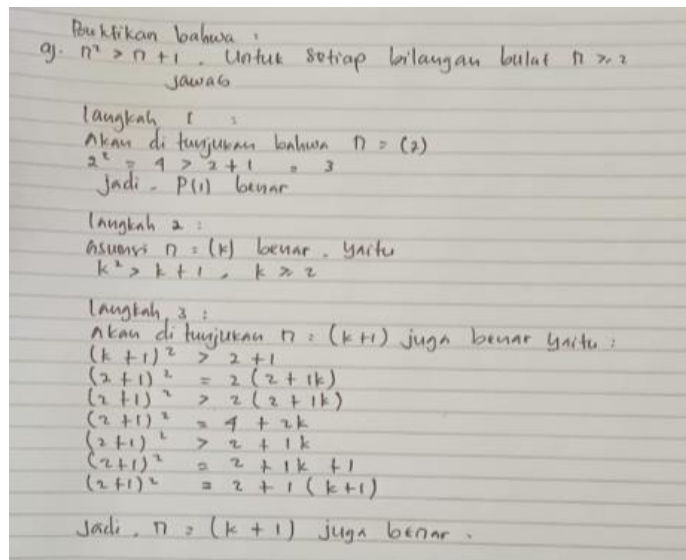 Buktikan bahwa :
9). n² > n + 1 . Untuk setiap bilangan bulat n ≥ 2
jawab
langkah 1 :
Akan di tunjukan bahwa n = (2)
2² = 4 > 2 + 1 = 3
Jadi . P(1) benar
langkah 2 :
Asumsi n = (k) benar . yaitu
k² > k + 1 , k ≥ 2
langkah 3 :
Akan di tunjukan n = (k+1) juga benar yaitu :
(k + 1)² > 2 + 1
(2 + 1)² = 2 ( 2 + 1k)
(2 + 1)² > 2 ( 2 + 1k)
(2 + 1)² = 4 + 2k
(2 + 1)² > 2 + 1k
(2+1)² = 2 + 1k + 1
(2+1)² = 2 + 1 ( k+1)
Jadi . n = (k + 1) juga benar .